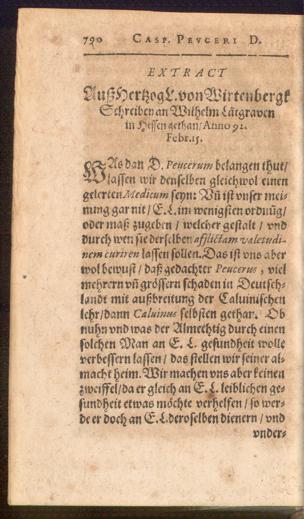 790 CASP. PEVCERI D.
EXTRACT
Auß Hertzog L. von Wirtenbergk
Schreiben an Wilhelm Lãtgraven
in Hessen gethan / Anno 92.
Febr. 15.
WAs dan D. Peucerum belangen thut /
lassen wir denselben gleichwol einen
gelerten Medicum seyn: Vñ ist vnser mei-
nung gar nit / E. L. im wenigsten ordnũg /
oder maß zugeben / welcher gestalt / vnd
durch wen sie derselben afflictam valetudi-
nem curiren lassen sollen. Das ist vns aber
wol bewust / daß gedachter Peucerus, viel
mehrern vñ grössern schaden in Deutsch-
landt mit außbreitung der Caluinischen
lehr / dann Caluinus selbsten gethar. Ob
nuhn vnd was der Almechtig durch einen
solchen Man an E. L. gesundheit wolle
verbessern lassen / das stellen wir seiner al-
macht heim. Wir machen vns aber keinen
zweiffel / da er gleich an E. L. leiblichen ge-
sundheit etwas möchte verhelfen / so wer-
de er doch an E. L. deroselben dienern / vnd
vnder-